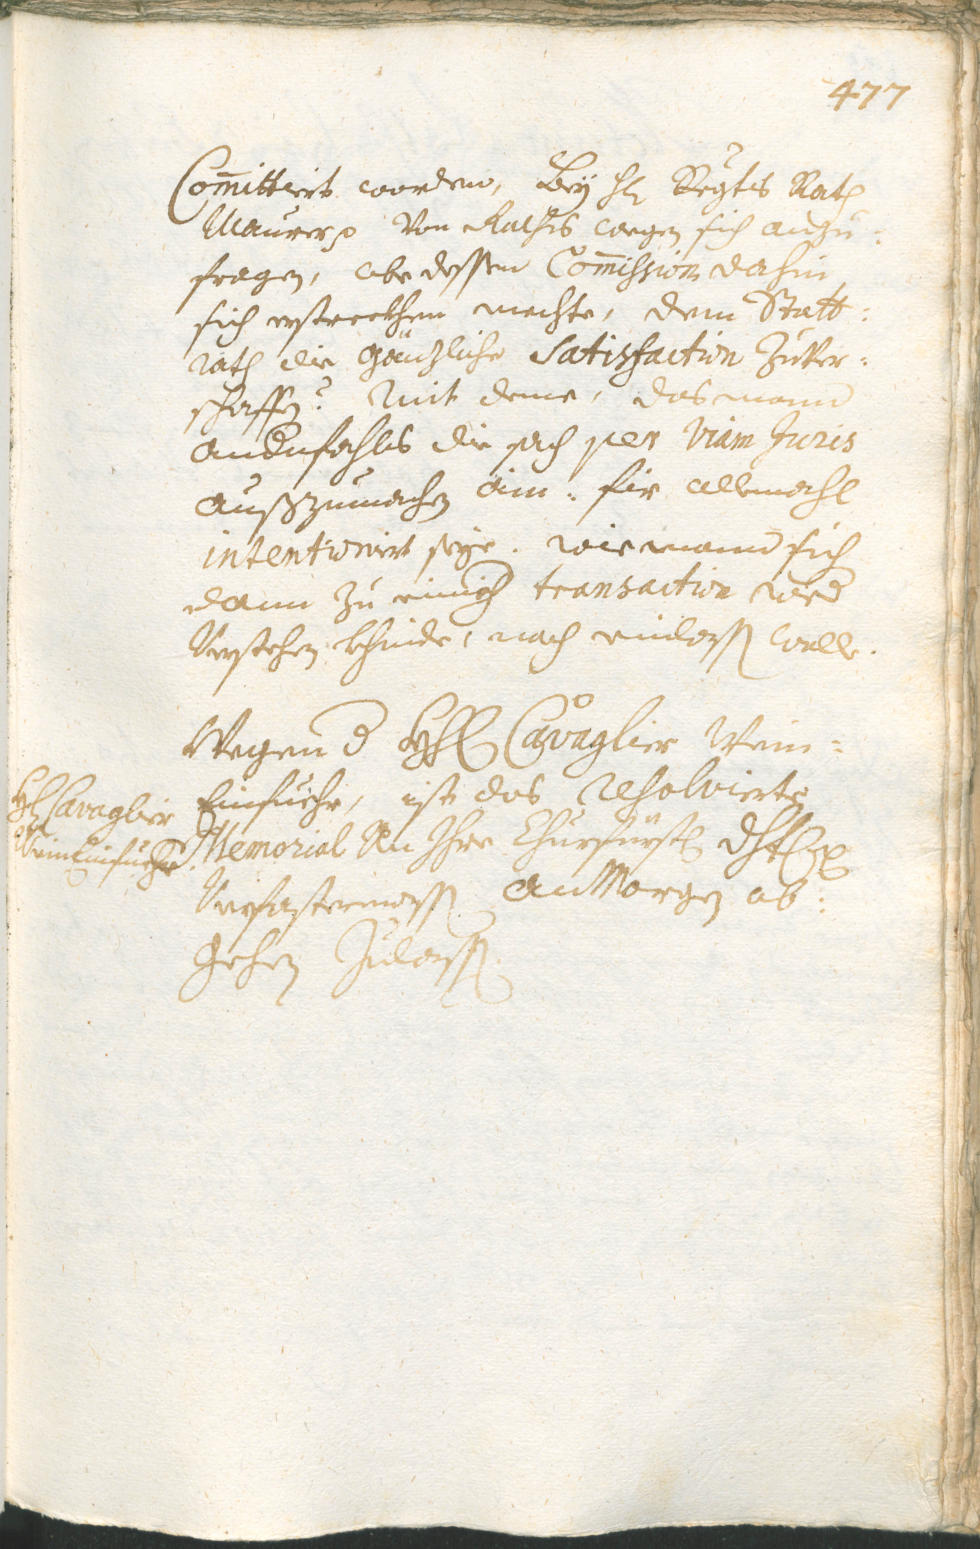 477
Com̄ittiert worden, Bey H: Regts Rath
Maurer von Raths wegen sich anzu=
fragen, obe dessen Com̄ission dahin
sich erstreckhen mechte, dem Statt=
rath die gänzliche Satisfaction zuver=
schaffen? mit deme, das mann
andenfahls die sach per Viam Juris
außzumachen ain= fir allemahl
intentionirt seye. wie mann sich
dann zu einiger transaction wed
verstehen khinde, noch einlassen wolle.
Wegen d HH: Cavaglier Wein=
Einfuehr, ist das resolvierte
Memorial An Ihre Churfürstl: Dhtl:
verfastermassen an Morgen ab=
gehen zulassen.
HH: Cavaglier
Wein Einfuehr.